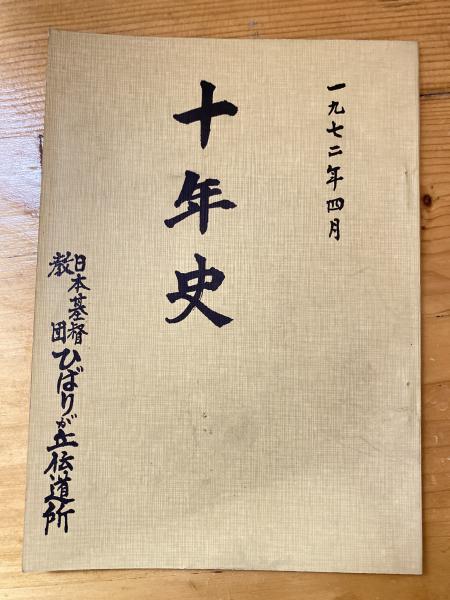 一九七二年四月
十年史
日本基督
教団
ひばりが丘伝道所